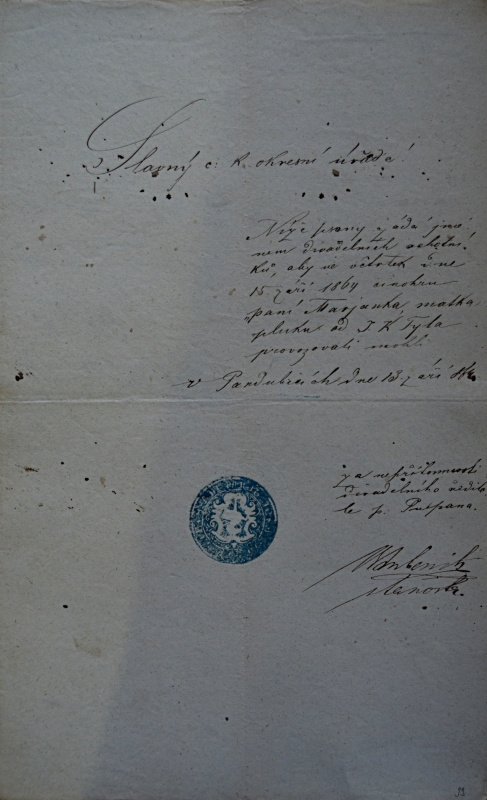 Slavný c. k. okresní úřade!
Níže psaný žádá jmé
nem divadelních ochotní
ků, aby ve čtvrtek dne
15 září 1864 činohru
paní Marjanka matka
pluku od J. K. Tyla
provozovati mohli
v Pardubicích dne 13 září
za nepřítomnosti
divadelního ředite
le p.